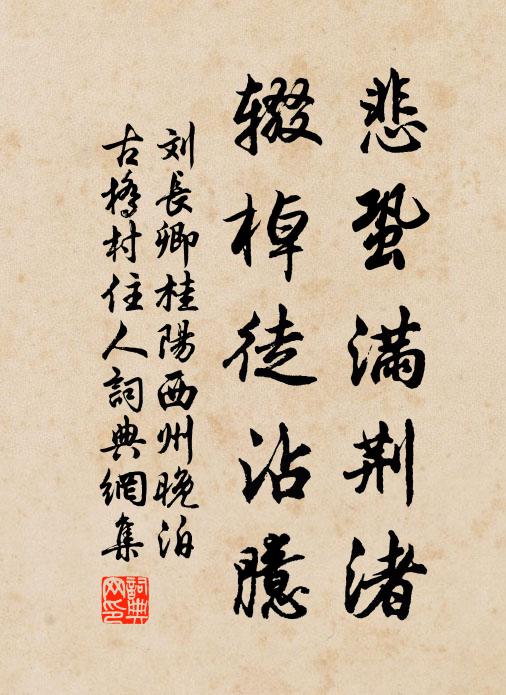 悲蛩满荆渚
辍棹徒沾臆
刘長卿桂陽西州晚泊
古橋村住人詞典網集
詞典网印